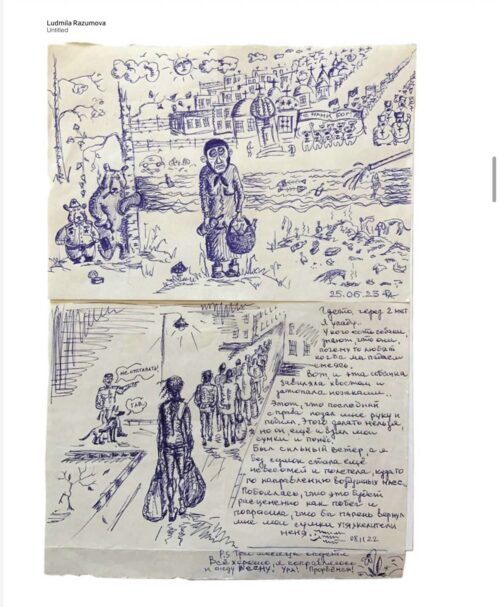 Ludmila Razumova
Untitled
НАМИ БОГ
25.06.23
НЕ ОТСТАВАТЬ!
ГАВ!
через 2 мет
я упаду.
У кого есть собаки,
знают, что они,
почему то любят
когда мы падаем
Вот и эта собачка
завиляла хвостом и
затопала ножками..
Этот, что последний
справа подал мне руку и
поднял. Этого делать нельзя
а он ещё и взял мои
сумки и понёс.
Был сильный ветер, а я
без сумок стала ещё
невесомей и полетела, куда то
по направлению воздушных масс.
Побоялась, что это будет
расценено как побег и
попросила, что бы парень вернул
мне мои сумки утяжелители
меня
08.11.22
P.S Три месяца
Всё хорошо, я
и жду весну! Ура! Прорвёмся!